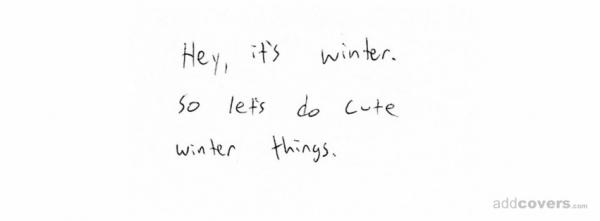 Hey, it's winter.
So let's do cute
winter things.
addcovers.com